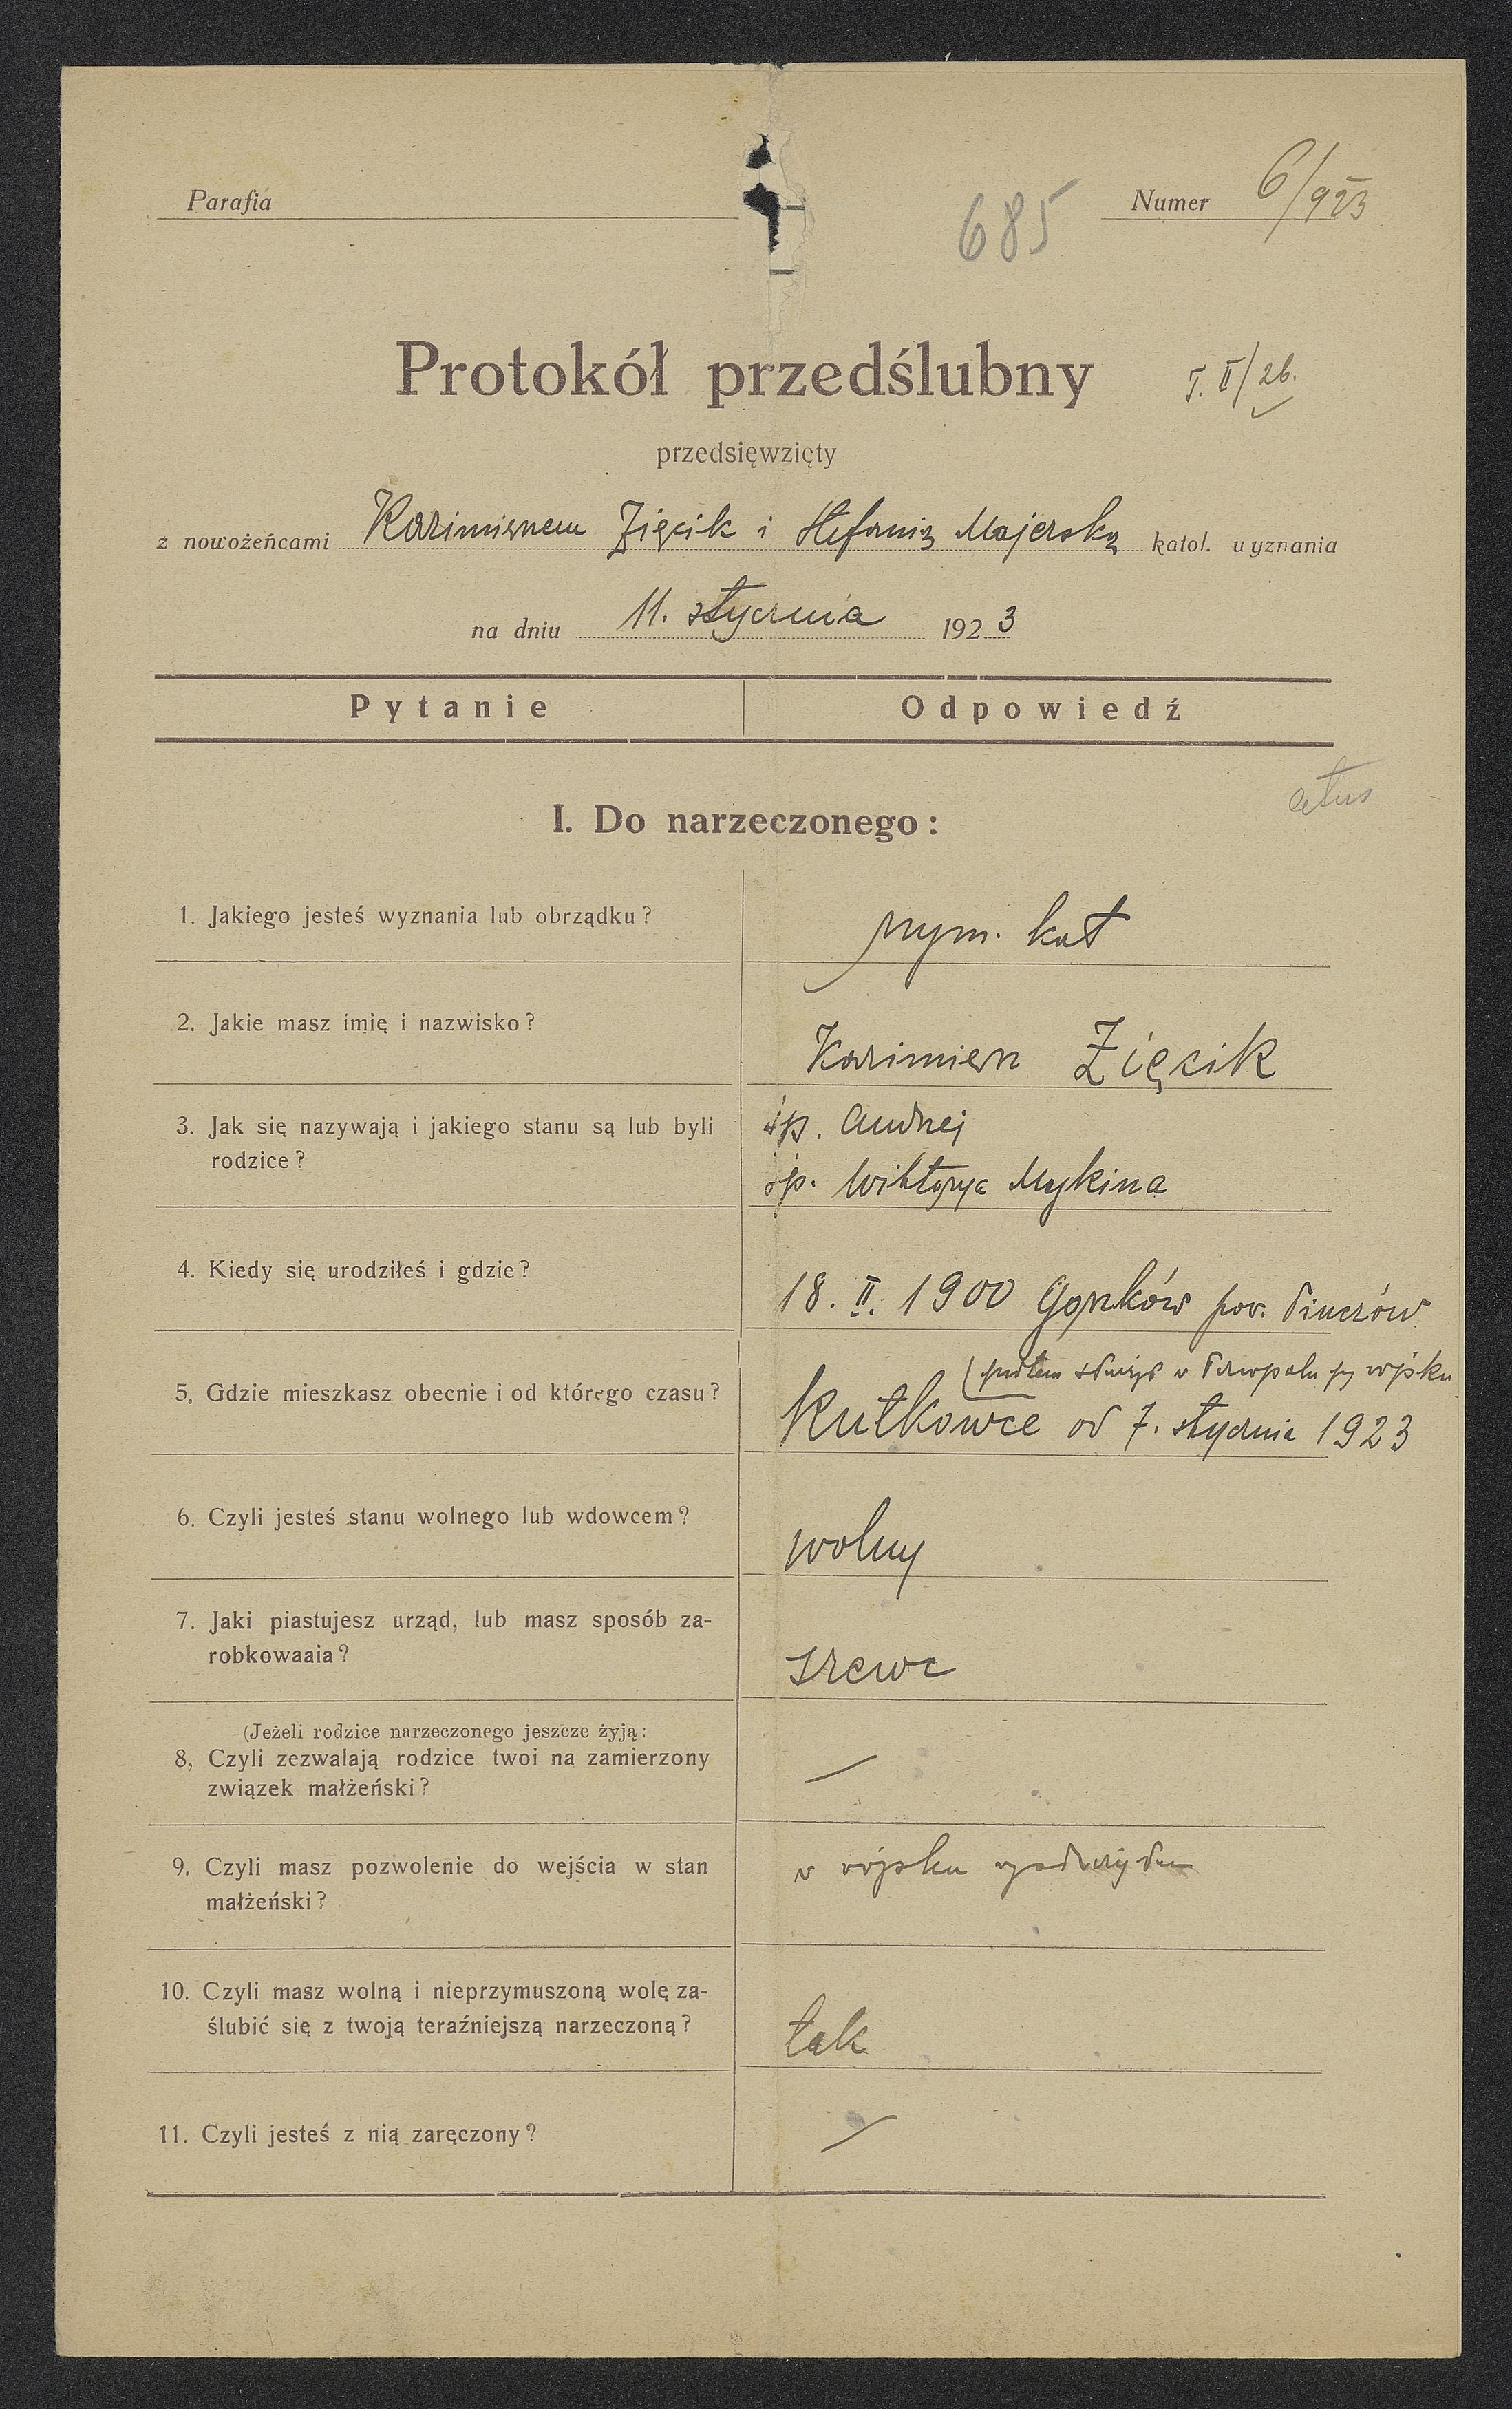 Parafia
Numer 6/923
685
Protokół przedślubny
T. II/26.
przedsięwzięty
z nowożeńcami Kazimierzem Zięcik i Stefanią Majerską katol. wyznania
na dniu 11. stycznia 1923
Pytanie Odpowiedź
I. Do narzeczonego:
1. Jakiego jesteś wyznania lub obrządku? rzym. kat
2. Jakie masz imię i nazwisko? Kazimierz Zięcik
3. Jak się nazywają i jakiego stanu są lub byli
rodzice?
śp. Andrzej
śp. Wiktorya Mykina
4. Kiedy się urodziłeś i gdzie? 18. II. 1900 Gorzków pow. Pinczów
5. Gdzie mieszkasz obecnie i od którego czasu?
w
przy wojsku
Kutkowce od 7. stycznia 1923
6. Czyli jesteś stanu wolnego lub wdowcem?
wolny
7. Jaki piastujesz urząd, lub masz sposób za-
robkowaaia?
szewc
(Jeżeli rodzice narzeczonego jeszcze żyją:
8, Czyli zezwalają rodzice twoi na zamierzony
związek małżeński?
—
9. Czyli masz pozwolenie do wejścia w stan
małżeński?
w wojsku
10. Czyli masz wolną i nieprzymuszoną wolę za-
ślubić się z twoją teraźniejszą narzeczoną?
tak
11. Czyli jesteś z nią zaręczony?
—